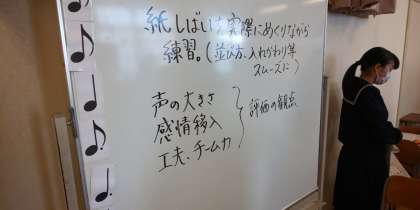 紙しばいを実際にめくりながら
練習。(並び方、入れかわり等
スムーズに)
声の大きさ
感情移入
工夫、チーム力
評価の観点